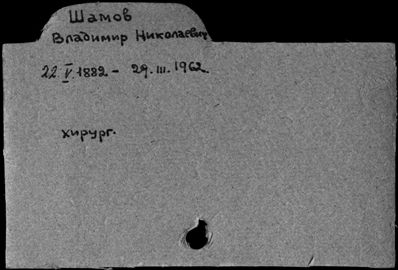 Шамов
Владимир Николаевич
22.V.1882 - 29.III.1962.
хирург.